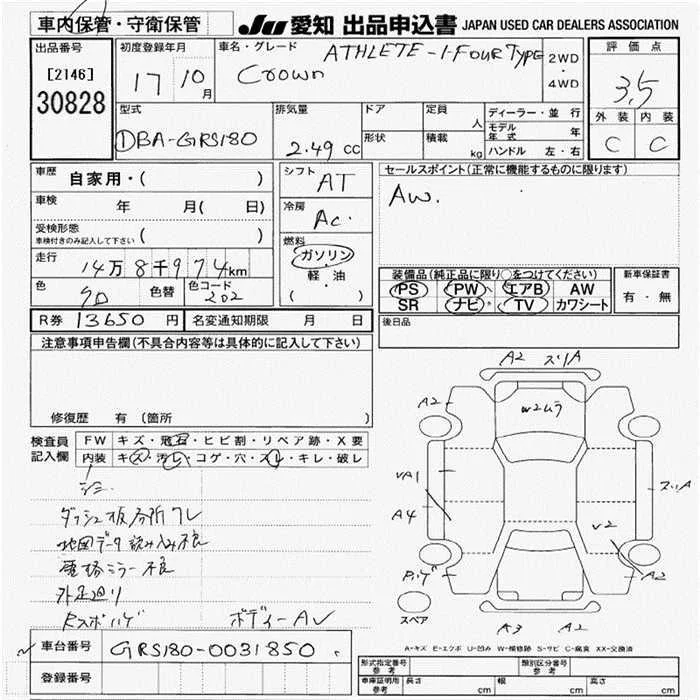 車内保管・守衛保管 JU 愛知 出品申込書 JAPAN USED CAR DEALERS ASSOCIATION
出品番号 初度登録年月 車名・グレード ATHLETE-I-FOUR TYPE 2WD・4WD 評価点
[2146] 17 10月 Crown 3.5
30828 型式 排気量 ドア 定員 人 ディーラー・並行 外装 内装
①DBA-GRS180 2.49 cc 形状 積載 kg モデル年式 年 C C
ハンドル 左・右
車歴 自家用・( ) シフト AT セールスポイント(正常に機能するものに限ります)
車検 年 月( 日) 冷房 AC. AW.
受検形態 ( )
車検付きのみ記入して下さい
燃料 ガソリン 軽・油 ( )
走行 14万8千974km
装備品(純正品に限り○をつけてください) 新車保証書
色 色替 色コード 202 PS PW エアB AW 有・無
SR ナビ TV カワシート
R券 13650円 名変通知期限 月 日 後日品
注意事項申告欄(不具合内容等は具体的に記入して下さい)
修復歴 有 (箇所
検査員記入欄 FW キズ・飛石・ヒビ割・リペア跡・X要
内装 キズ・汚レ・コゲ・穴・スレ・キレ・破レ
シミ
ダッシュ板 名所 ワレ
地図データ読み込み不良
電格ミラー不良
外足廻り
Rスポハゲ ボディーAU
A2 スリA
A2 W2ムラ
UA1 スリA
A4 U2
Rハゲ A2
スペア
A3 A2
A-キズ E-エクボ U-凹み W-補修跡 S-サビ C-腐食 XX-交換済
車台番号 GRS180-0031850
登録番号
型式指定番号 参考 類別区分番号 参考
車庫証明用 参考 長さ cm 幅 cm 高さ cm